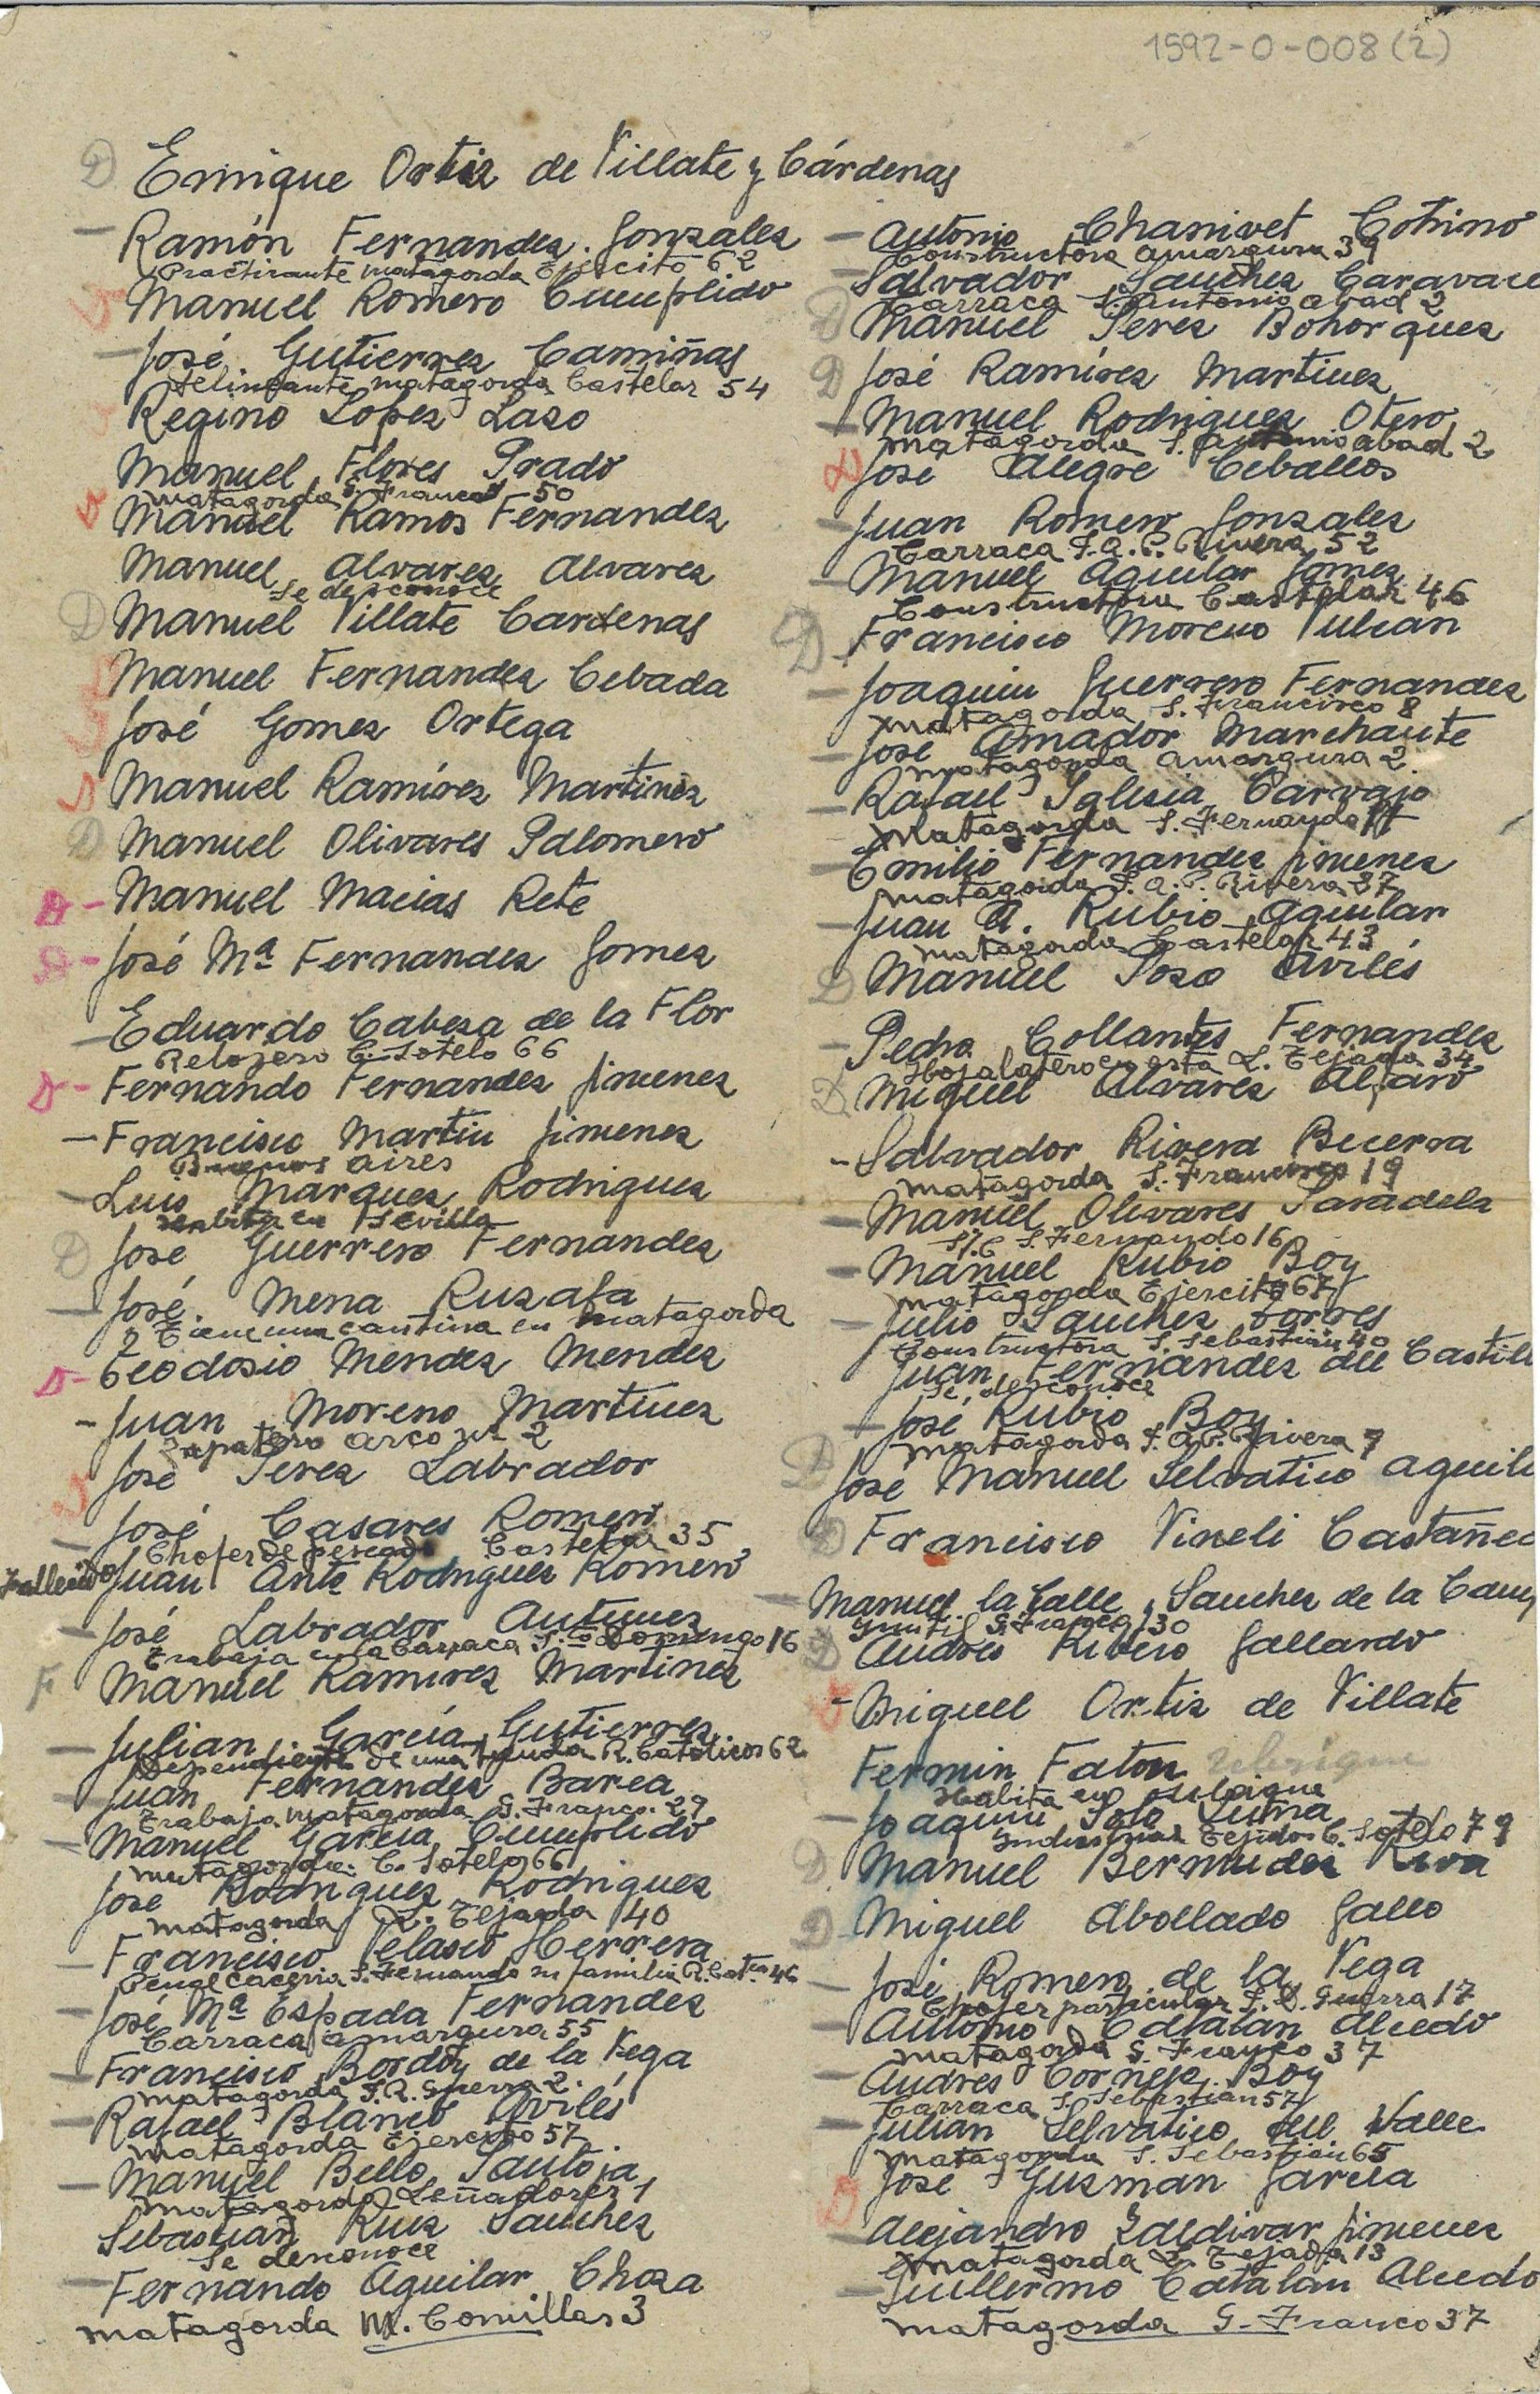 1592-0-008(2)
D Enrique Ortiz de Villate y Cárdenas
- Ramón Fernandez Gonzalez
Practicante matagorda Ejercito 62
Manuel Romero Cumplido
- José Gutierrez Camiñas
Delineante matagorda Castelar 54
Regino Lopez Lazo
Manuel Flores Prado
matagorda G. Franco 50
Manuel Ramos Fernandez
Manuel Alvarez Alvarez
se desconoce
D Manuel Villate Cardenas
Manuel Fernandez Cebada
José Gomez Ortega
Manuel Ramírez Martinez
D Manuel Olivares Palomero
D - Manuel Macias Rete
D - José Mª Fernandez Gomez
- Eduardo Cabeza de la Flor
Relojero C. Sotelo 66
D - Fernando Fernandez Jimenez
- Francisco Martin Jimenez
Buenos aires
- Luis Marquez Rodriguez
Habita en Sevilla
D José Guerrero Fernandez
- José Mena Ruzafa
Tiene una cantina en matagorda
D - Teodosio Mendez Mendez
- Juan Moreno Martinez
Zapatero arco nº 2
José Perez Labrador
- José Casares Romero
Chofer de pescado Castelar 35
Fallecido Juan Antº Rodriguez Romero
- José Labrador Antunez
Trabaja en la Carraca Sto Domingo 16
F Manuel Ramirez Martinez
- Julian García Gutierrez
Dependiente de una tienda R. Catolicos 62
- Juan Fernandez Barea
Trabaja matagorda G. Franco 29
- Manuel Garcia Cumplido
matagorda C. Sotelo 66
José Rodriguez Rodriguez
matagorda L. Tejada 40
- Francisco Velasco Herrera
Penal S. Fernando su familia R. Catcos 46
- José Mª Espada Fernandez
Carraca amargura 55
- Francisco Bordoy de la Vega
matagorda Guerra 2.
- Rafael Blanco Avilés
matagorda Ejercito 57
- Manuel Bello Pantoja
matagorda Leñadores 1
Sebastian Ruiz Sanchez
Se desconoce
- Fernando Aguilar Choza
matagorda M. Comillas 3
- Antonio Chanivet Cotrino
Constructora amargura 39
- Salvador Sanchez Caravaca
Carraca S. antonio abad 2
D Manuel Perez Bohorquez
D José Ramírez Martinez
- Manuel Rodriguez Otero
matagorda S. antonio abad 2
José Alegre Ceballos
- Juan Romero Gonzalez
Carraca J.A.P. Rivera 52
- Manuel Aguilar Gomez
Constructora Castelar 46
D Francisco Moreno Vulian
- Joaquin Guerrero Fernandez
matagorda S. Francisco 8
- José Amador Marchante
matagorda amargura 2
- Rafael Iglesia Carvajo
matagorda S. Fernando 17
- Emilio Fernandez Jimenez
matagorda J.A.P. Rivera 37
- Juan A. Rubio Aguilar
matagorda Castelar 43
D Manuel Pozo Avilés
- Pedro Collantes Fernandez
Hojalatero cuesta L. Tejada 34
D Miguel Alvarez Alfaro
- Salvador Rivera Becerra
matagorda S. Francisco 19
- Manuel Olivares Paradela
S/C S. Fernando 16
- Manuel Rubio Boy
matagorda Ejercito 67
- Julio Sanchez Torres
Constructora S. Sebastian 40
Juan Fernandez del Castill
Se desconoce
- José Rubio Boy
matagorda J.A.P. Rivera 9
D José Manuel Selvatico aguil
D Francisco Vineli Castañed
- Manuel la Calle Sanchez de la Camp
G. Franco 130
D Andres Rivero Gallardo
- Miguel Ortiz de Villate
Fermin Faton
Habita en
- Joaquin Soto Luma
Industrial Tejidos C. Sotelo 79
D Manuel Bermudez Riva
D Miguel Abollado Gallo
- José Romero de la Vega
Chofer particular Guerra 17
- Antonio Catalan Alcedo
matagorda G. Franco 37
- Andres Cornejo Boy
Carraca S. Sebastian 57
- Julian Selvatico del Valle
matagorda S. Sebastian 65
D José Guzman Garcia
- Alejandro Zaldivar Jimenez
matagorda L. Tejada 13
- Guillermo Catalan Alcedo
matagorda G. Franco 37